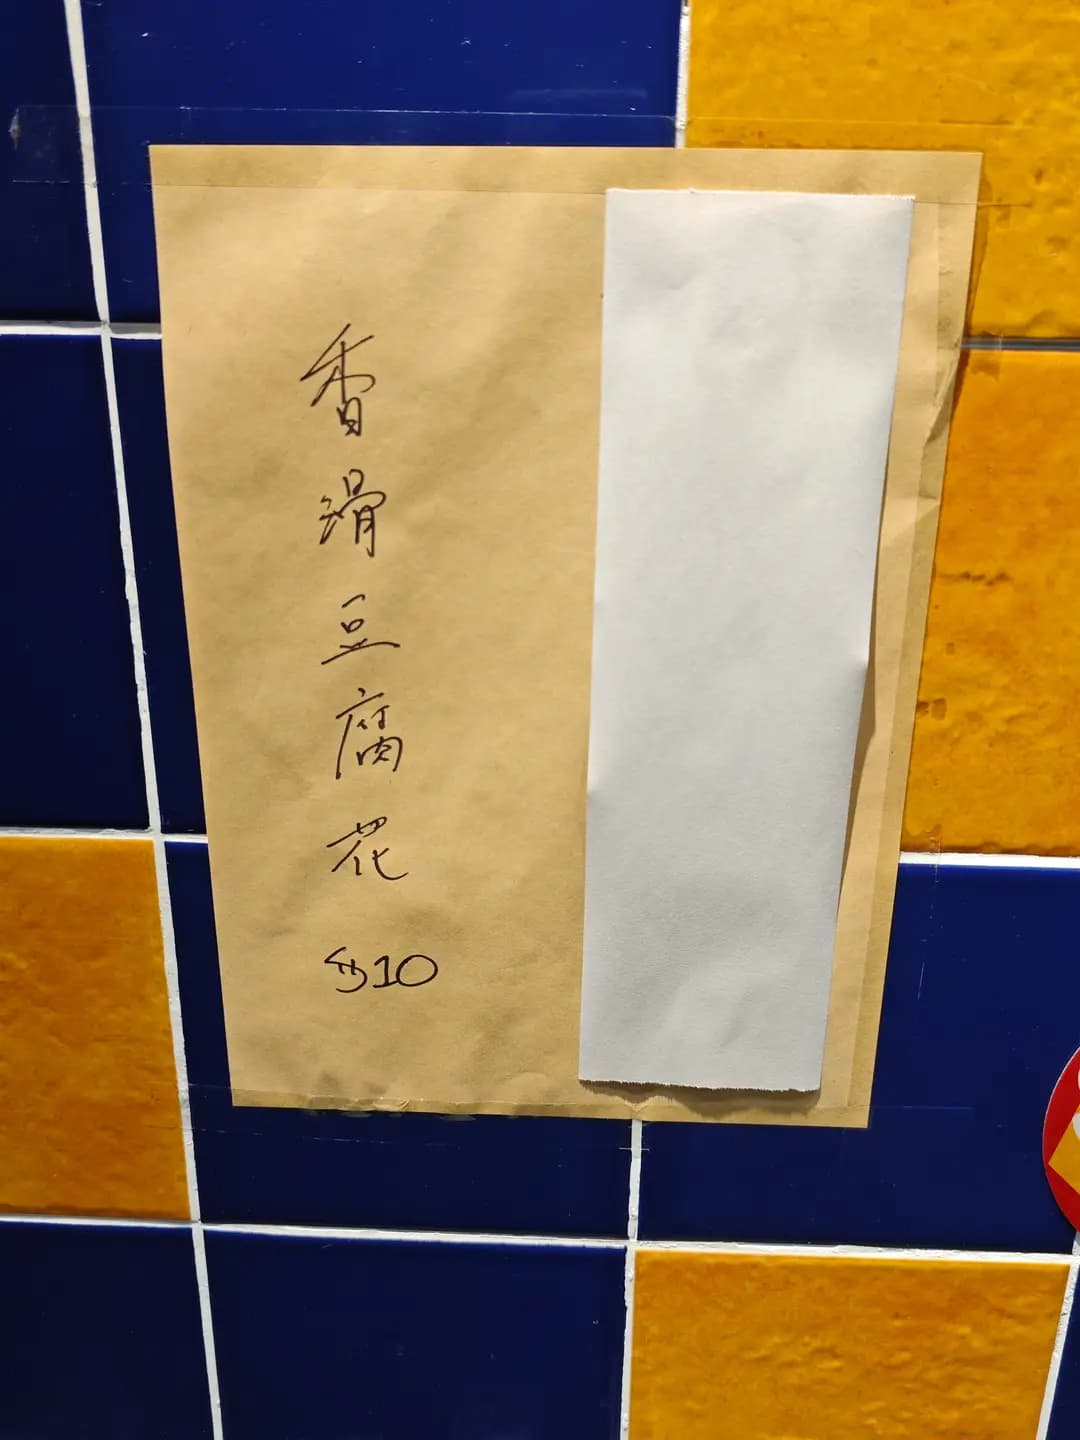 香滑豆腐花 $10